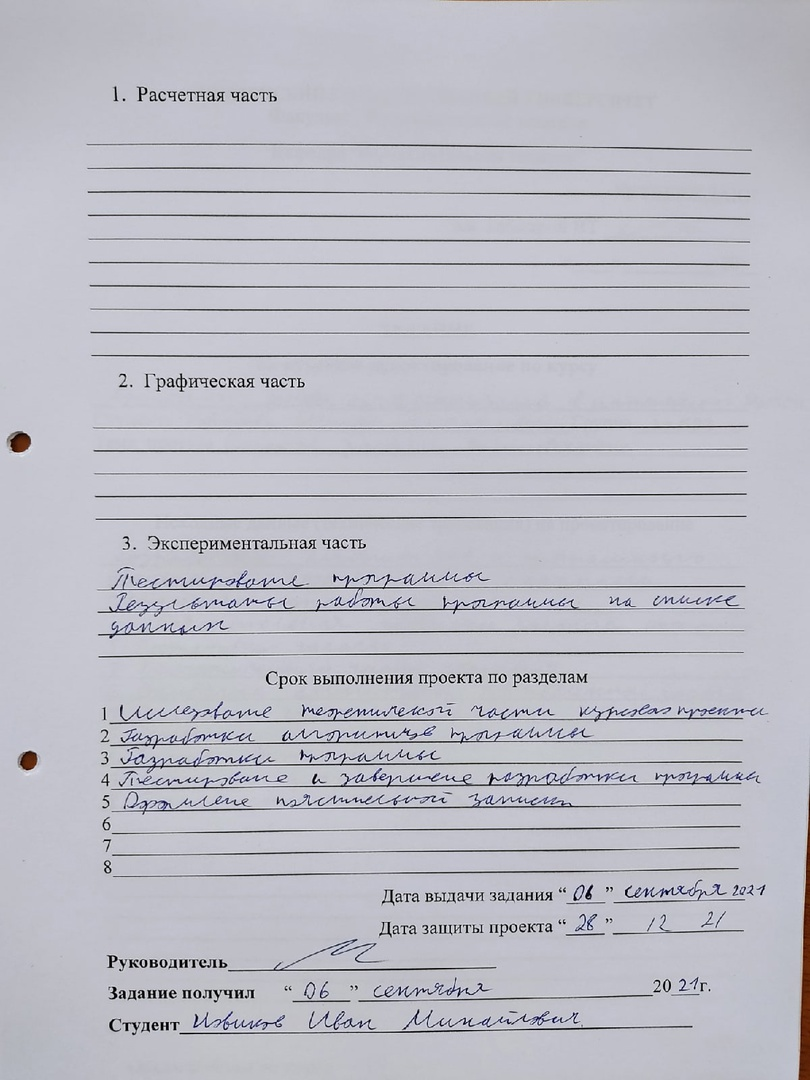 1. Расчетная часть
2. Графическая часть
3. Экспериментальная часть
Тестирование программы
Результаты работы программы на списке
данных
Срок выполнения проекта по разделам
1 Исследование теоретической части курсового проекта
2 Разработка алгоритмов программы
3 Разработка программы
4 Тестирование и завершение разработки программы
5 Оформление пояснительной записки
6
7
8
Дата выдачи задания “06” сентября 2021
Дата защиты проекта “28” 12 21
Руководитель
Задание получил “06” сентября 2021г.
Студент Иван Михайлович